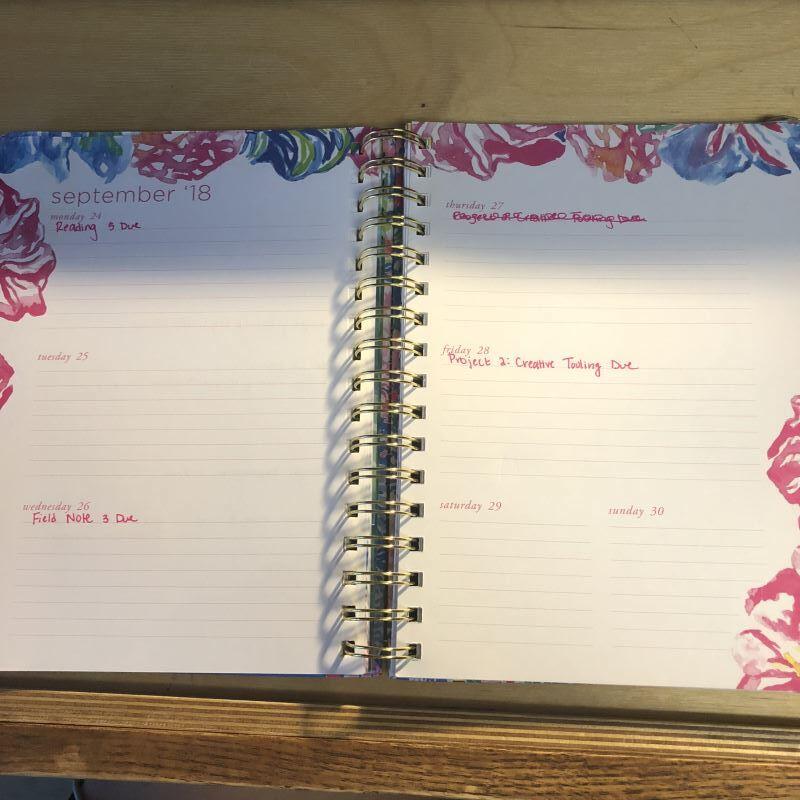 september '18
monday 24
Reading 5 Due
tuesday 25
wednesday 26
Field Note 3 Due
thursday 27
Creative Tooling Due
friday 28
Project 2: Creative Tooling Due
saturday 29
sunday 30